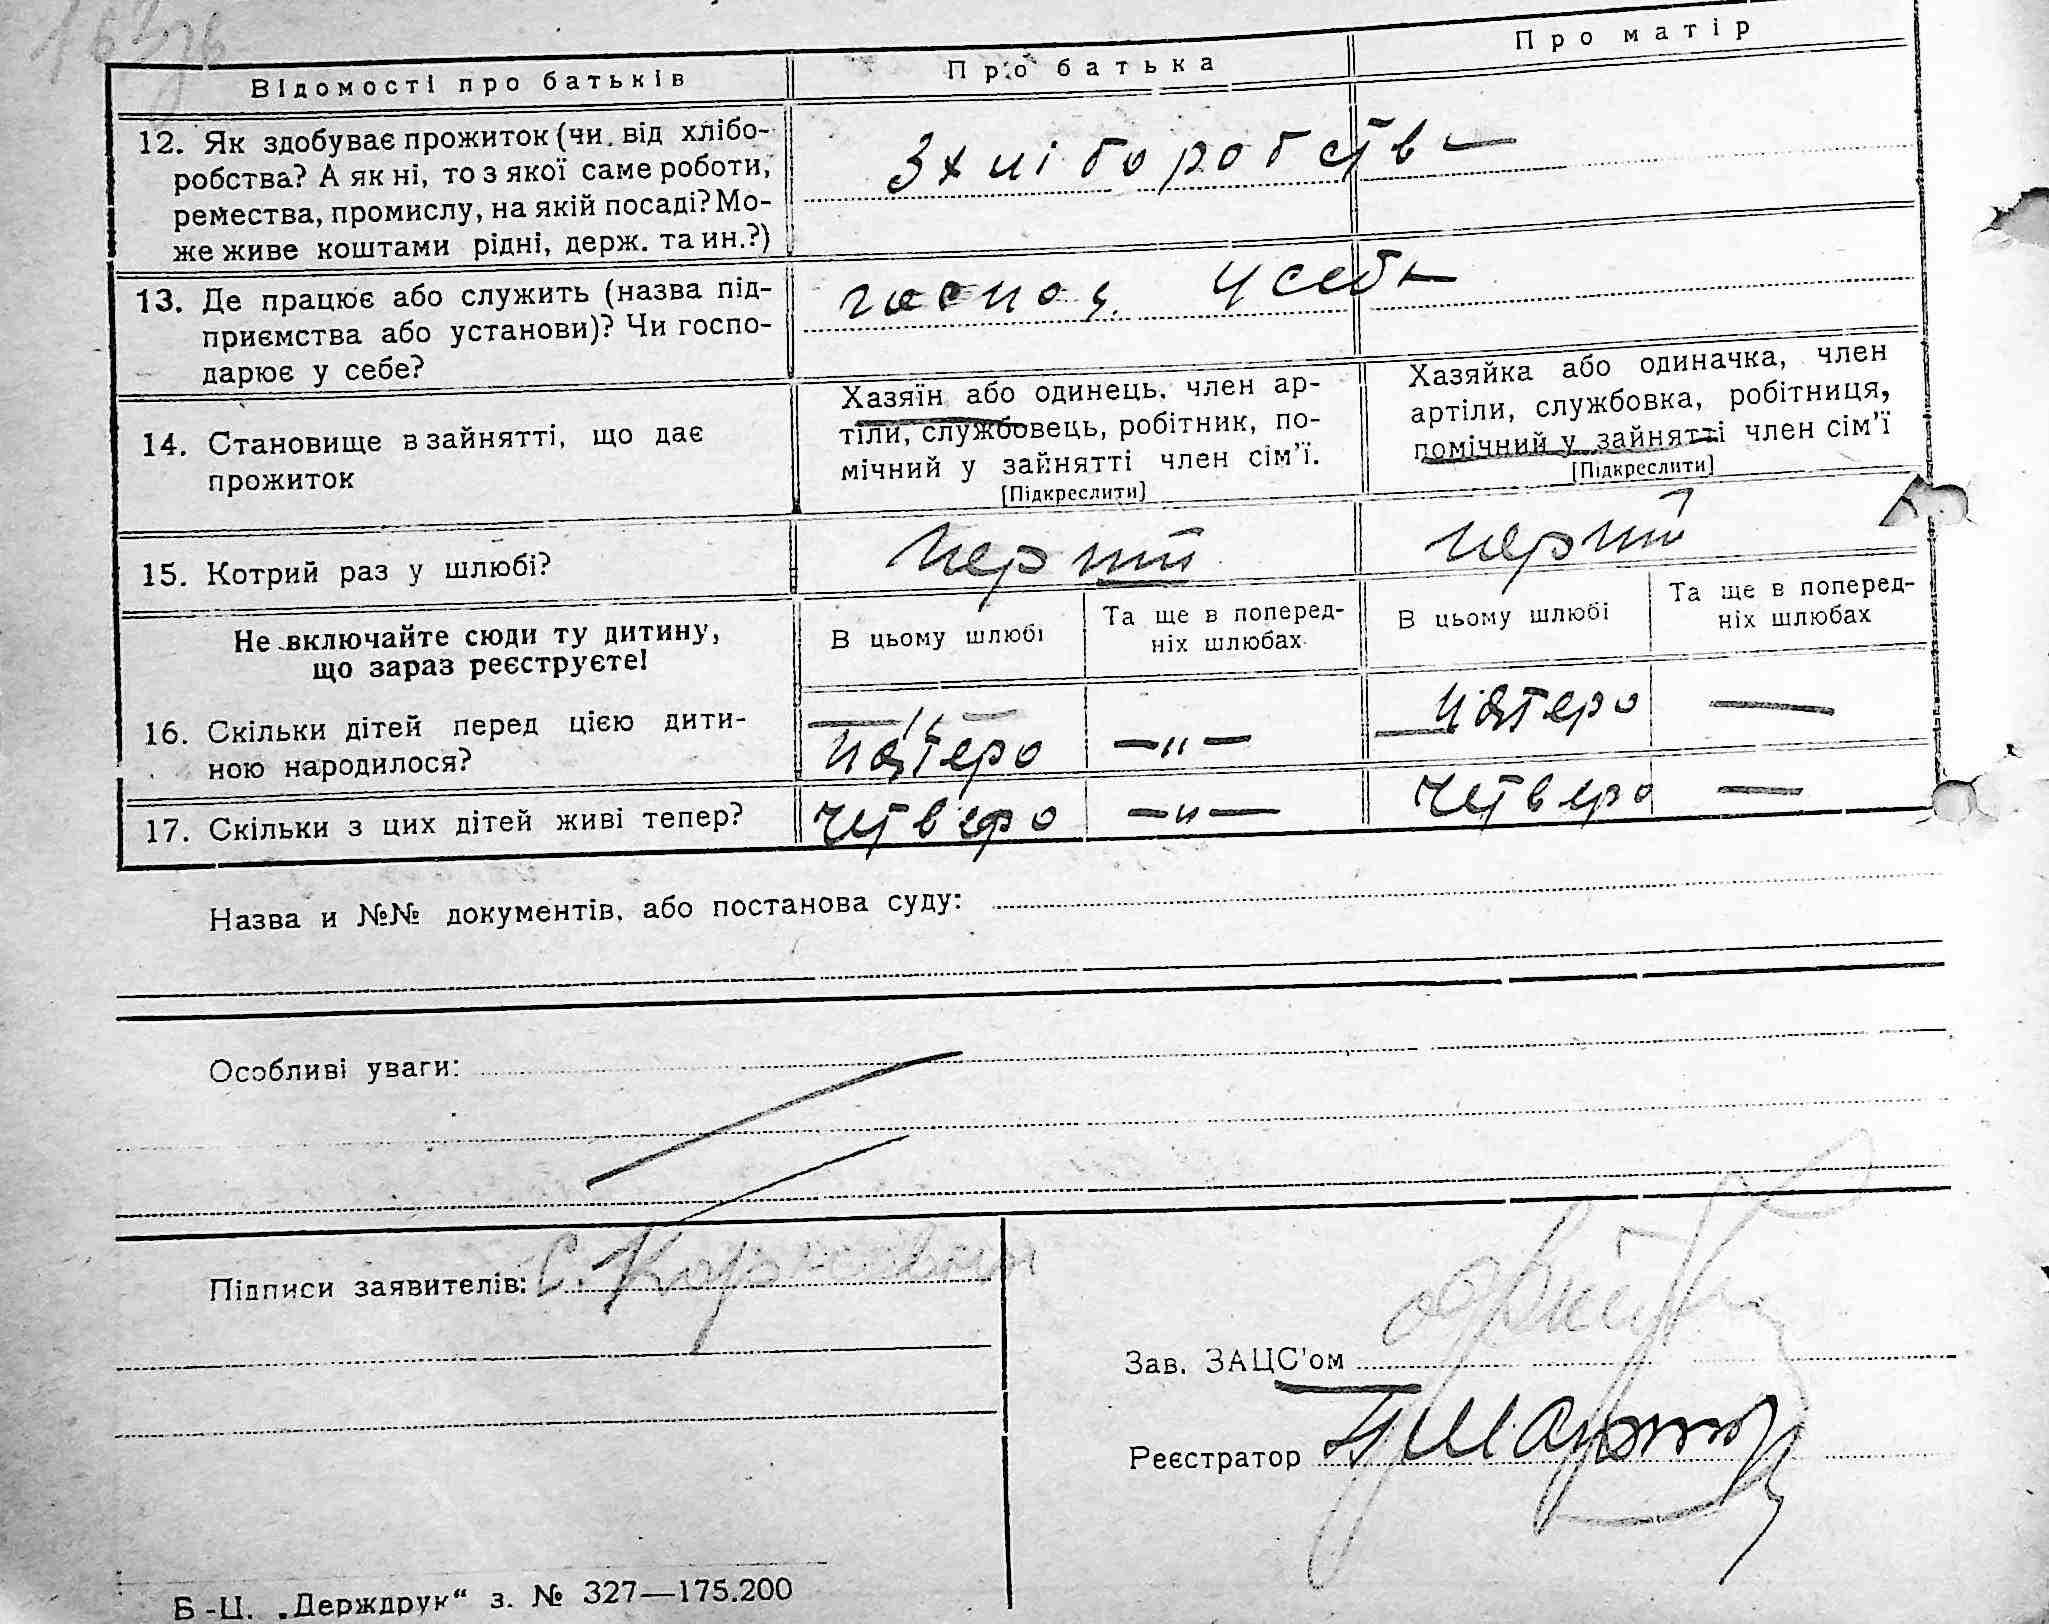 Відомості про батьків
Про батька
Про матір
12. Як здобуває прожиток (чи від хлібо-
робства? А як ні, то з якої саме роботи,
ремества, промислу, на якій посаді? Мо-
же живе коштами рідні, держ. та ин.?)
З хліборобства
13. Де працює або служить (назва під-
приємства або установи)? Чи госпо-
дарює у себе?
господ. у себе
14. Становище в зайнятті, що дає
прожиток
Хазяїн або одинець, член ар-
тіли, службовець, робітник, по-
мічний у зайнятті член сім'ї.
[Підкреслити]
Хазяйка або одиначка, член
артіли, службовка, робітниця,
помічний у зайнятті член сім'ї
[Підкреслити]
15. Котрий раз у шлюбі?
перший
перший
Не включайте сюди ту дитину,
що зараз реєструєте!
В цьому шлюбі
Та ще в поперед-
ніх шлюбах
В цьому шлюбі
Та ще в поперед-
ніх шлюбах
16. Скільки дітей перед цією дити-
ною народилося?
— „ —
пятеро
— „ —
пятеро
—
17. Скільки з цих дітей живі тепер?
четверо
— „ —
четверо
—
Назва и №№ документів, або постанова суду:
Особливі уваги:
Підписи заявителів:
Зав. ЗАЦС'ом
Реєстратор
Б-Ц. „Держдрук“ з. № 327—175.200